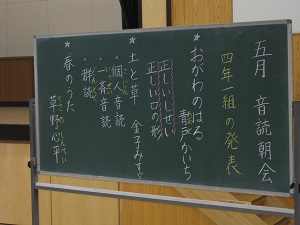 五月 音読朝会
四年一組の発表
* おがわのはる 青戸かいち
正しいしせい
正しい口の形
* 土と草 金子みすゞ
・個人音読
・一斉音読
・群読
* 春のうた
草野心平